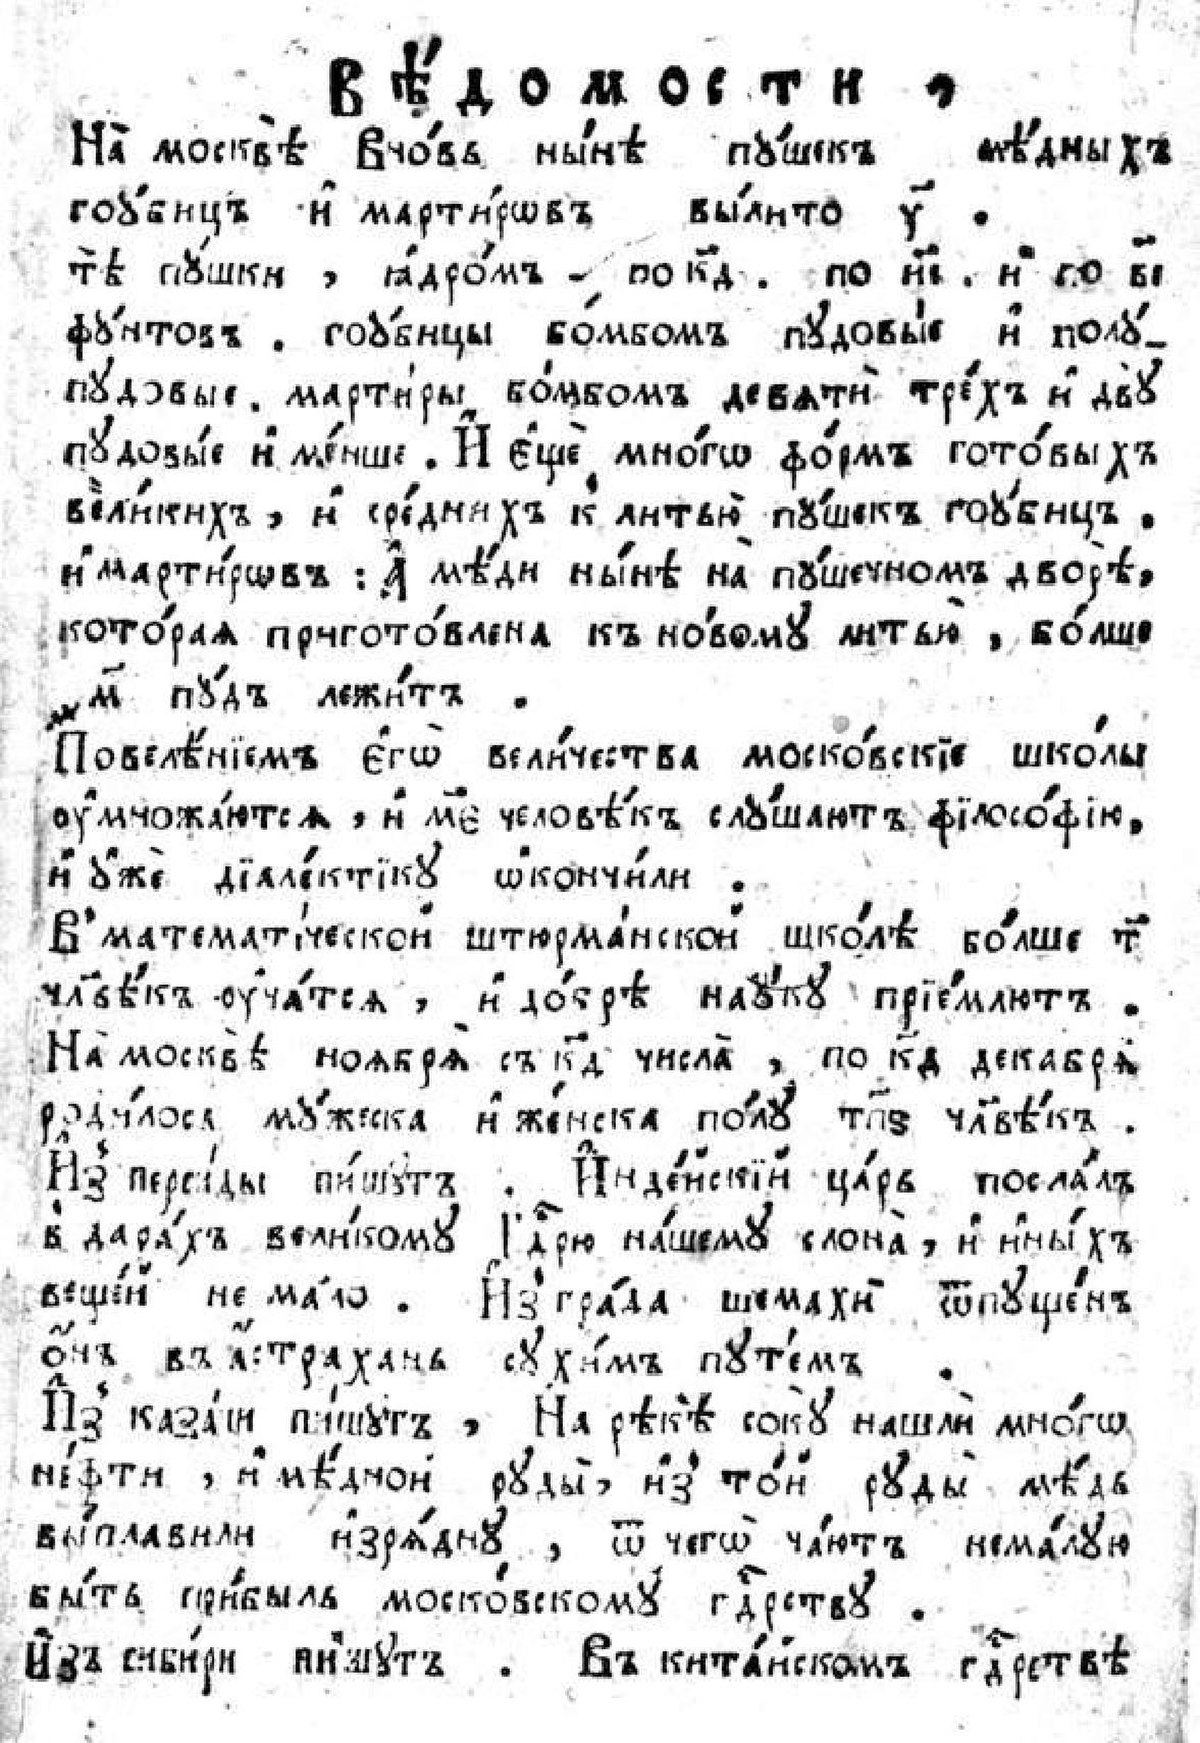 Вѣ́домости ,
На̀ москвѣ̀ вно́вь ны́нѣ пу́шекъ мѣ́дныхъ
гоу́бицъ и҆ марти́рѡвъ вы́лито у҃ .
тѣ̀ пу́шки , ꙗ҆дро́мъ - по к҃д . по н҃і . и҆ по в҃і
фу́нтовъ . гоу́бицы бо́мбомъ пудовы́е и҆ полу́-
пудовые . марти́ры бо́мбомъ девѧтѝ тре́хъ и҆ двꙋ̀
пудовы́е и҆ ме́нше . И҆ є҆щѐ мно́гѡ фо́рмъ гото́выхъ
вели́кихъ , и҆ сре́днихъ к̾ литью̀ пу́шекъ гоу́бицъ .
и҆ марти́рѡвъ : А҆ мѣ́ди ны́нѣ на̀ пу́шечномъ дворѣ̀ ,
кото́раѧ пригото́влена къ но́вому литью̀ , бо́лше
м҃ пу́дъ лежи́тъ .
Повелѣ́нїемъ є҆гѡ̀ вели́чества моско́вскїе шко́лы
оу҆множа́ютсѧ , и҆ м҃є человѣ́къ слу́шаютъ фїлосо́фїю ,
и҆ у҆жѐ дїале́ктїку ѡ҆кончи́ли .
В̾ математи́ческой штюрма́нской шко́лѣ бо́лше т҃
чл҃вѣ́къ оу҆ча́тсѧ , и҆ до́брѣ нау́ку прїе́млютъ .
На̀ москвѣ̀ ноѧбрѧ̀ съ к҃д числа̀ , по к҃д декабрѧ̀
роди́лосѧ му́жеска и҆ же́нска по́лу т҃пѕ чл҃вѣ́къ .
И҆з̾ перси́ды пи́шутъ . И҆нде́йскїй ца́рь посла́лъ
в̾ дара́хъ вели́кому Гдⷭ҇рю на́шему слона̀ , и҆ и҆ны́хъ
веще́й не ма́ло . И҆з̾ гра́да шемахѝ ѿпуще́нъ
о҆́нъ въ а҆́страхань сухи́мъ путе́мъ .
И҆з̾ каза́ни пи́шутъ , На рѣкѣ̀ соку̀ нашлѝ мно́гѡ
не́фти , и҆ мѣ́дной руды̀ , и҆з̾ то́й руды̀ мѣ́дь
вы́плавили и҆зрѧ́дну , ѿ чегѡ̀ ча́ютъ нема́лую
бы́ть при́быль моско́вскому гдⷭ҇рству .
И҆зъ сиби́ри пи́шутъ . Въ кита́йскомъ гдⷭ҇рствѣ